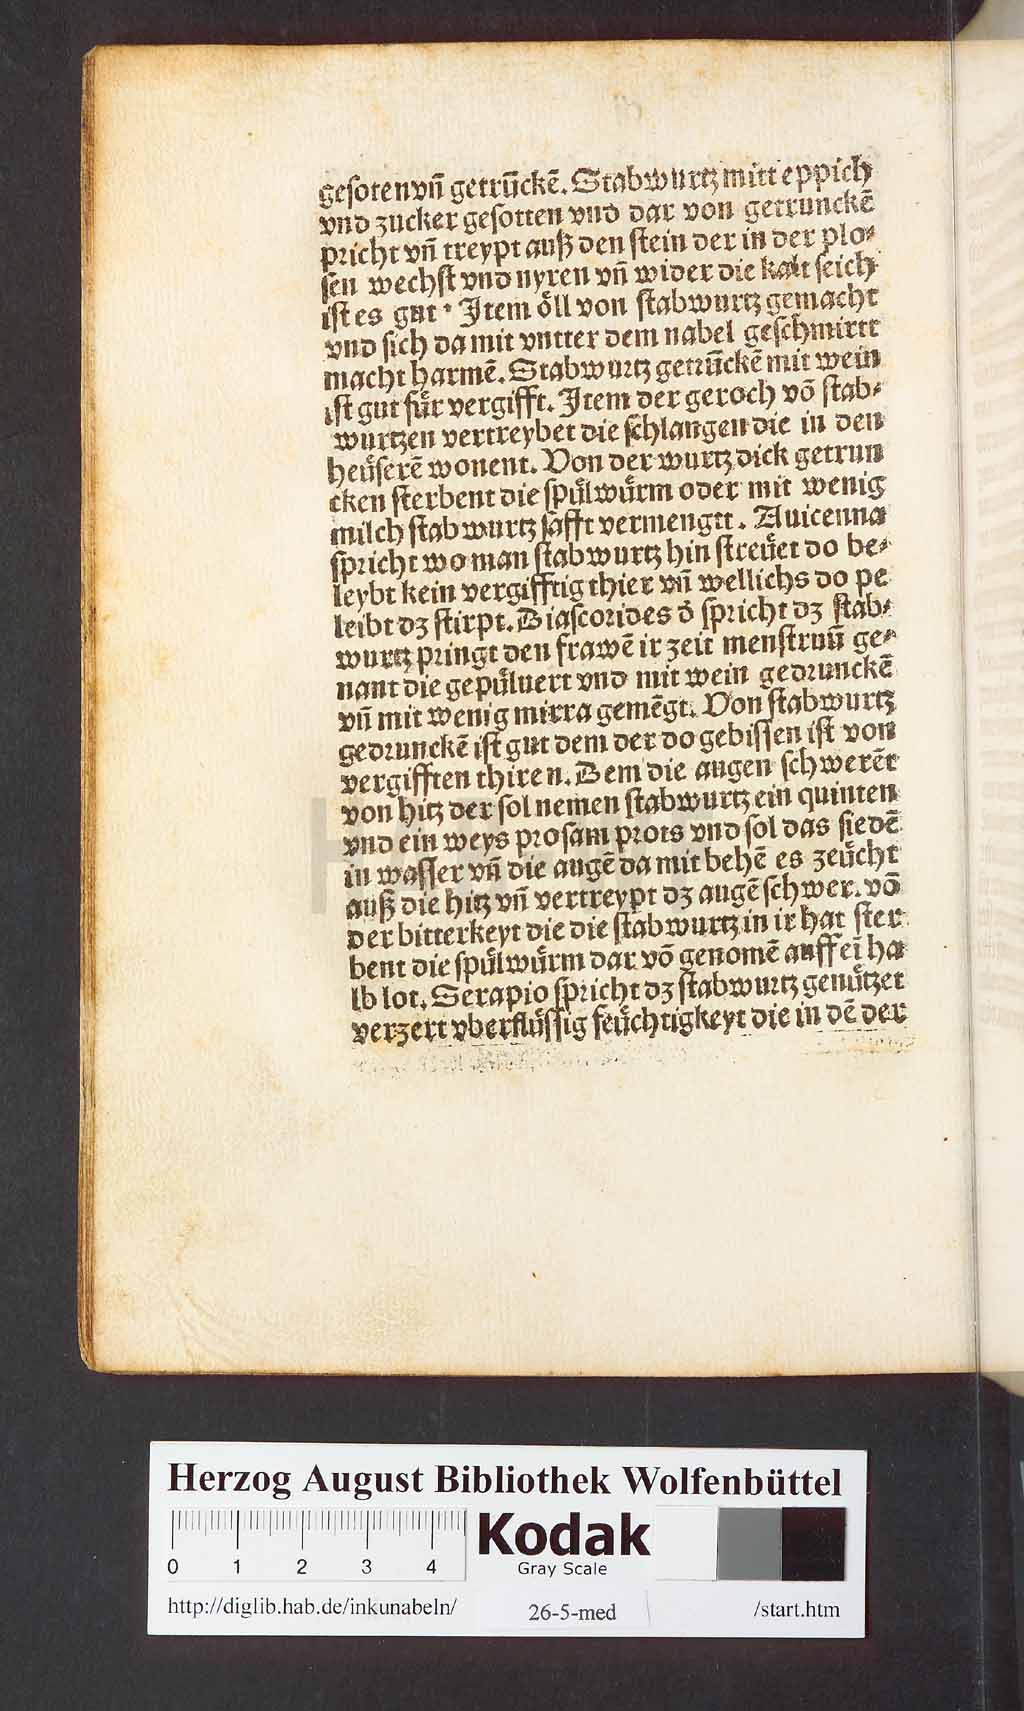 geſoten vn̄ getrūckē. Stabwurtz mitt eppich
vnd zucker geſotten vnd dar von getrunckē
pricht vn̄ treypt auſz den ſtein der in der plo⸗
ſen wechſt vnd nyren vn̄ wider die kalt ſeich
iſt es gut · Item oͤll von ſtabwurtz gemacht
vnd ſich da mit vntter dem nabel geſchmirtt
macht harmē. Stabwurtz getrūckē mit wein
iſt gut fuͤr vergifft. Item der geroch vō ſtab⸗
wurtzen vertreybet die ſchlangen die in den
heuͤſerē wonent. Von der wurtz dick getrun
cken ſterbent die ſpuͤlwuͤrm oder mit wenig
milch ſtabwurtz ſafft vermengtt. Auicenna
ſpricht wo man ſtabwurtz hin ſtreuͤet do be⸗
leybt kein vergifftig thier vn̄ wellichs do pe
leibt dz ſtirpt. Diaſcorides d̄ ſpricht dz ſtab⸗
wurtz pringt den frawē ir zeit menſtruū ge⸗
nant die gepuͤluert vnd mit wein gedrunckē
vn̄ mit wenig mirra gemēgt. Von ſtabwurtz
gedrunckē iſt gut dem der do gebiſſen iſt von
vergifften thiren. Dem die augen ſchwerēt
von hitz der ſol nemen ſtabwurtz ein quinten
vnd ein weys proſam prots vnd ſol das ſiedē
in waſſer vn̄ die augē da mit behē es zeuͤcht
auſz die hitz vn̄ vertreypt dz augē ſchwer. vō
der bitterkeyt die die ſtabwurtz in ir hat ſter
bent die ſpuͤlwuͤrm dar vō genomē auff eī ha
lb lot. Serapio ſpricht dz ſtabwurtz genuͤtzet
verzert vberfluͤſſig feuͤchtigkeyt die in dē der
HAB
Herzog August Bibliothek Wolfenbüttel
0 1 2 3 4
Kodak
Gray Scale
http://diglib.hab.de/inkunabeln/ 26-5-med /start.htm